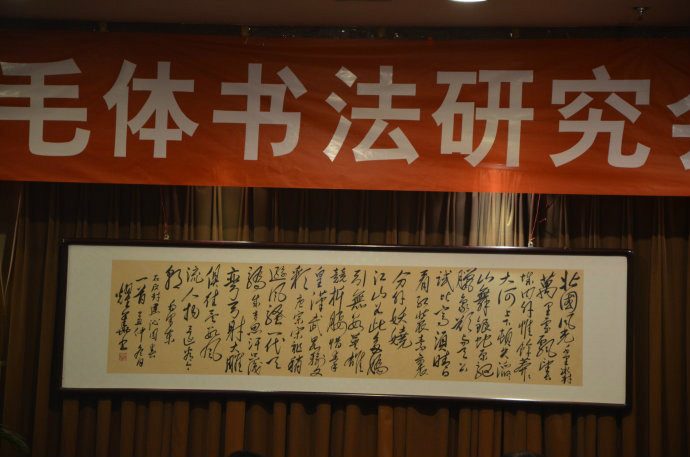 毛体书法研究会
北國风光千里冰封
萬里雪飘望
长城内外惟馀莽莽
大河上下顿失滔滔
山舞银蛇原驰
腊象欲与天公
试比高须晴日
看红装素裹
分外妖娆
江山如此多娇
引無数英雄
竞折腰惜秦
皇汉武略输文
彩唐宗宋祖稍
逊风骚一代天
骄成吉思汗只识
弯弓射大雕
俱往矣数风
流人物还看今
朝 毛泽东
沁园春
一首